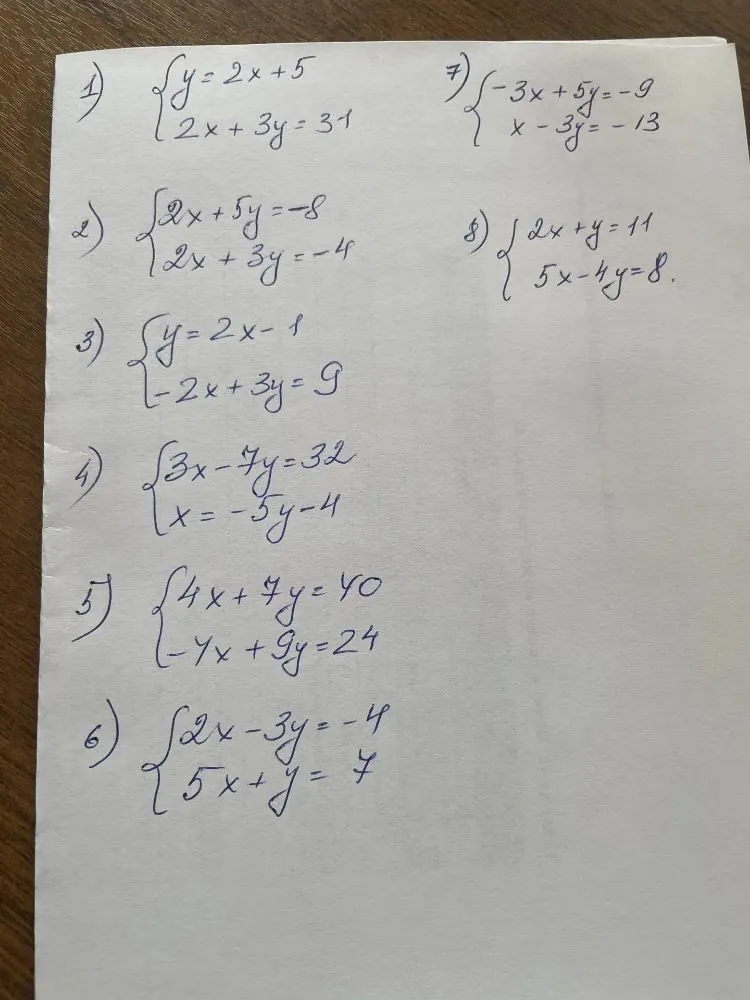 1) y = 2x + 5
2x + 3y = 31
2) 2x + 5y = -8
2x + 3y = -4
3) y = 2x - 1
-2x + 3y = 9
4) 3x - 7y = 32
x = -5y - 4
5) 4x + 7y = 40
-4x + 9y = 24
6) 2x - 3y = -4
5x + y = 7
7) -3x + 5y = -9
x - 3y = -13
8) 2x + y = 11
5x - 4y = 8.